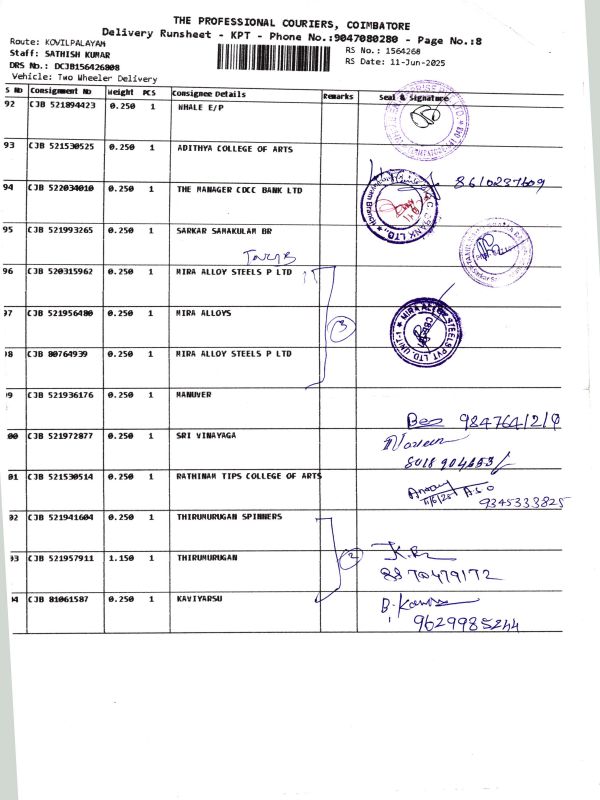 THE PROFESSIONAL COURIERS, COIMBATORE
Delivery Runsheet - KPT - Phone No.:9047080280 - Page No.:8
Route: KOVILPALAYAM
RS No.: 1564268
Staff: SATHISH KUMAR
RS Date: 11-Jun-2025
DRS No.: DCJB156426808
Vehicle: Two Wheeler Delivery
S No Consignment No Weight PCS Consignee Details Remarks Seal & Signature
92 CJB 521894423 0.250 1 WHALE E/P
93 CJB 521530525 0.250 1 ADITHYA COLLEGE OF ARTS
94 CJB 522034010 0.250 1 THE MANAGER CDCC BANK LTD 8610237609
95 CJB 521993265 0.250 1 SARKAR SAMAKULAM BR
96 CJB 520315962 0.250 1 MIRA ALLOY STEELS P LTD
97 CJB 521956480 0.250 1 MIRA ALLOYS 3
MIRA ALLOY STEELS PVT. LTD. UNIT-1
98 CJB 80764939 0.250 1 MIRA ALLOY STEELS P LTD
99 CJB 521936176 0.250 1 MANUVER
00 CJB 521972877 0.250 1 SRI VINAYAGA Naveen
01 CJB 521530514 0.250 1 RATHINAM TIPS COLLEGE OF ARTS
9345333825
02 CJB 521941604 0.250 1 THIRUMURUGAN SPINNERS
03 CJB 521957911 1.150 1 THIRUMURUGAN 2
8870479172
04 CJB 81061587 0.250 1 KAVIYARSU
9629985244